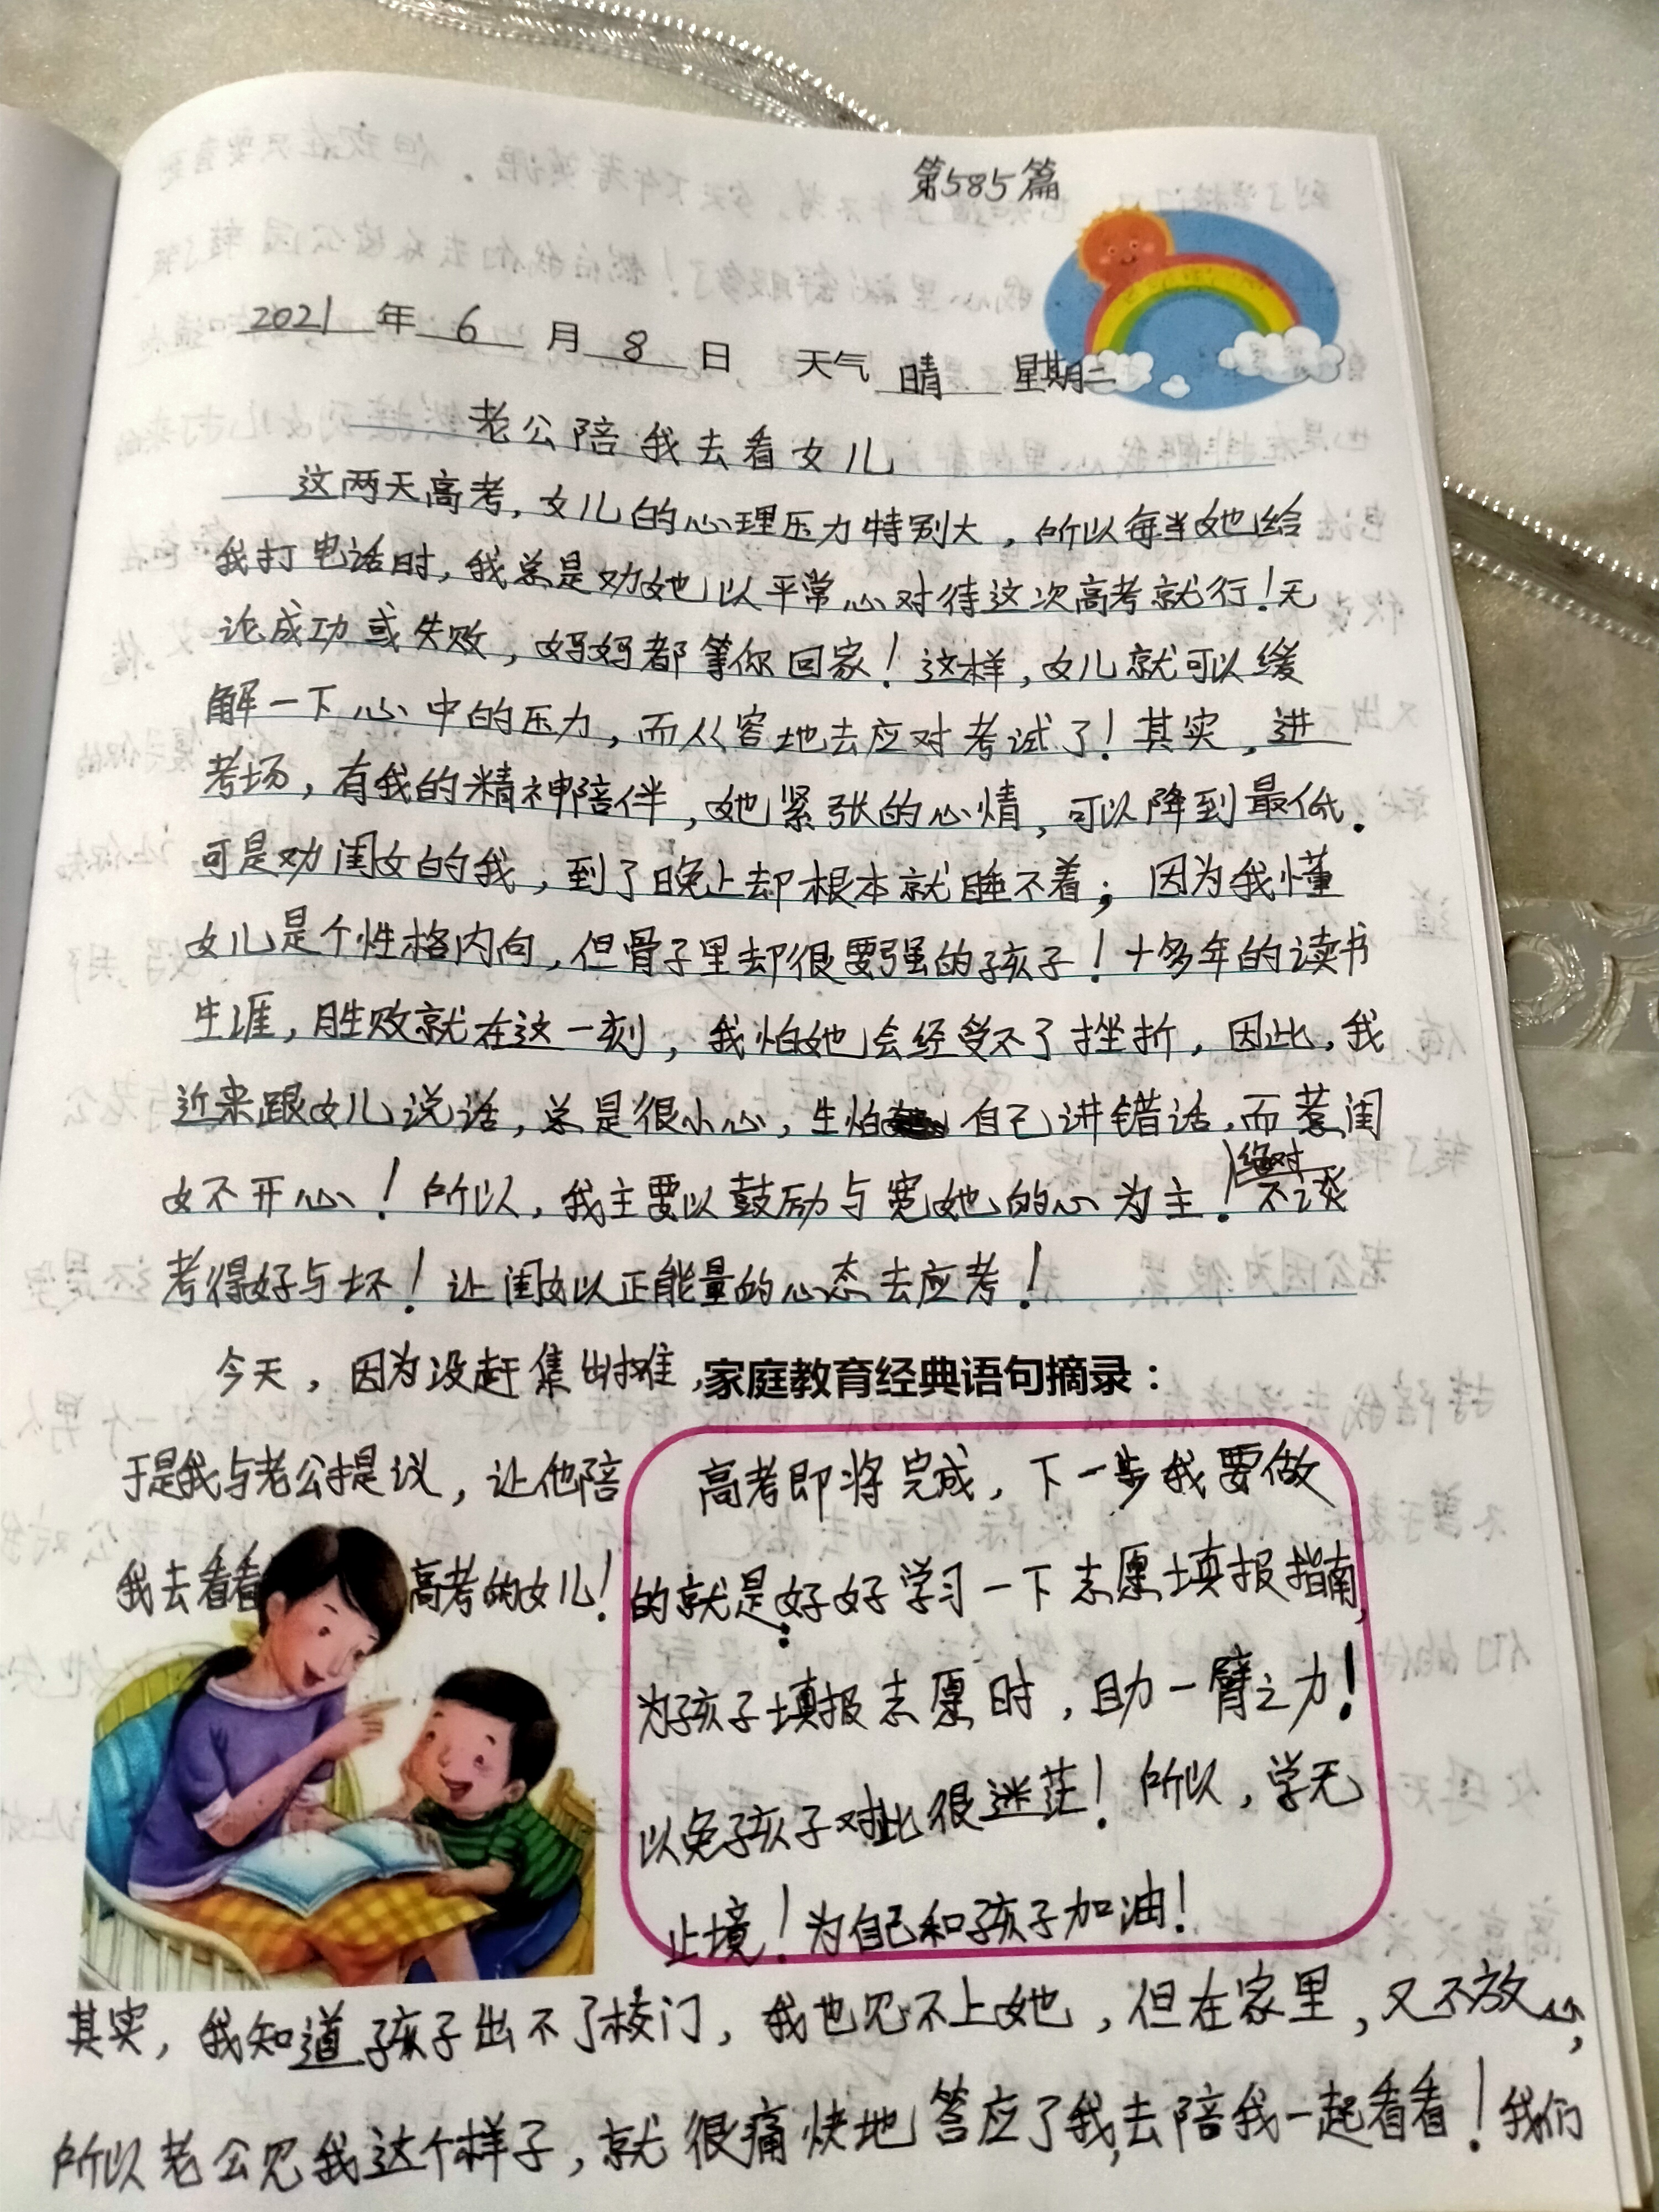 第585篇
2021年6月8日 天气 晴 星期二
老公陪我去看女儿
这两天高考,女儿的心理压力特别大,所以每当她给
我打电话时,我总是劝她以平常心对待这次高考就行!无
论成功或失败,妈妈都等你回家!这样,女儿就可以缓
解一下心中的压力,而从容地去应对考试了!其实,进
考场,有我的精神陪伴,她紧张的心情,可以降到最低.
可是劝闺女的我,到了晚上却根本就睡不着;因为我懂
女儿是个性格内向,但骨子里却很要强的孩子!十多年的读书
生涯,胜败就在这一刻,我怕她会经受不了挫折,因此,我
近来跟女儿说话,总是很小心,生怕自己讲错话,而惹闺
女不开心!所以,我主要以鼓励与宽她的心为主!绝对不谈
考得好与坏!让闺女以正能量的心态去应考!
今天,因为没赶集出摊,
于是我与老公提议,让他陪
我去看看高考的女儿!
家庭教育经典语句摘录:
高考即将完成,下一步我要做
的就是好好学习一下志愿填报指南,
为孩子填报志愿时,助一臂之力!
以免孩子对此很迷茫!所以,学无
止境!为自己和孩子加油!
其实,我知道孩子出不了校门,我也见不上她,但在家里,又不放心,
所以老公见我这个样子,就很痛快地答应了我,去陪我一起看看!我们